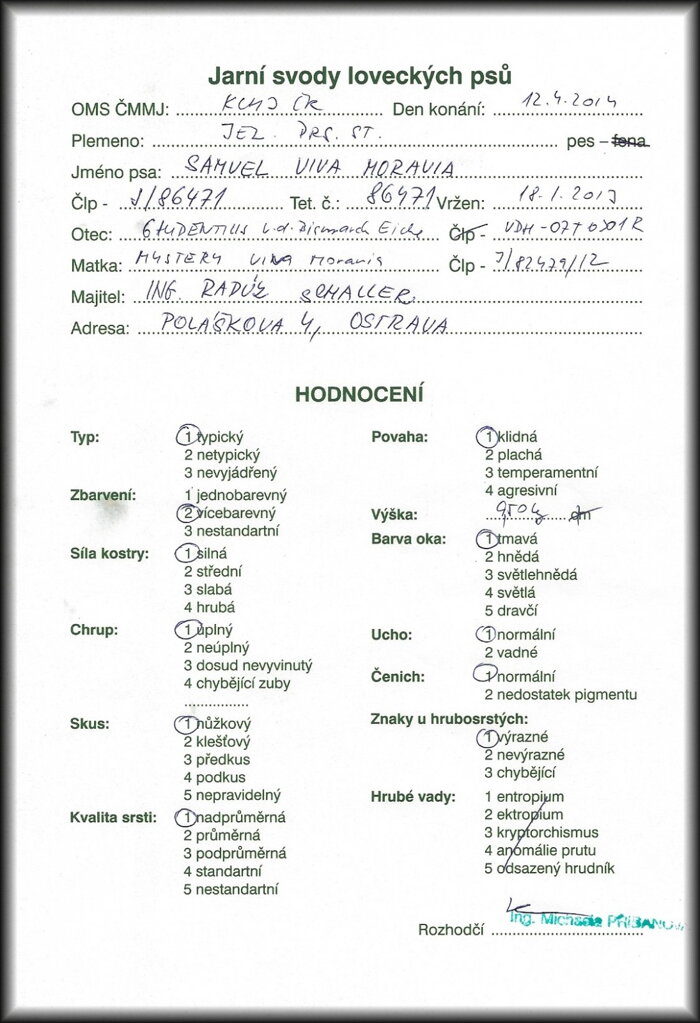 Jarní svody loveckých psů
OMS ČMMJ: KCHJ ČR Den konání: 12.4.2014
Plemeno: JEZ. DRS. ST. pes – fena
Jméno psa: SAMUEL VIVA MORAVIA
Člp - J/86471 Tet. č.: 86471 Vržen: 18.1.2013
Otec: STUDENTIUS v.d. Bismarck Eiche Člp - VDH-07T0301R
Matka: MYSTERY VIVA Moravia Člp - J/82479/12
Majitel: ING. RADÚZ SCHALLER
Adresa: POLÁŠKOVA 4, OSTRAVA
HODNOCENÍ
Typ: 1 typický
2 netypický
3 nevyjádřený
Zbarvení: 1 jednobarevný
2 vícebarevný
3 nestandartní
Síla kostry: 1 silná
2 střední
3 slabá
4 hrubá
Chrup: 1 úplný
2 neúplný
3 dosud nevyvinutý
4 chybějící zuby
Skus: 1 nůžkový
2 klešťový
3 předkus
4 podkus
5 nepravidelný
Kvalita srsti: 1 nadprůměrná
2 průměrná
3 podprůměrná
4 standartní
5 nestandartní
Povaha: 1 klidná
2 plachá
3 temperamentní
4 agresivní
Výška: cm
Barva oka: 1 tmavá
2 hnědá
3 světlehnědá
4 světlá
5 dravčí
Ucho: 1 normální
2 vadné
Čenich: 1 normální
2 nedostatek pigmentu
Znaky u hrubosrstých:
1 výrazné
2 nevýrazné
3 chybějící
Hrubé vady: 1 entropium
2 ektropium
3 kryptorchismus
4 anomálie prutu
5 odsazený hrudník
Ing. Michaela PŘIBAŇOVÁ
Rozhodčí